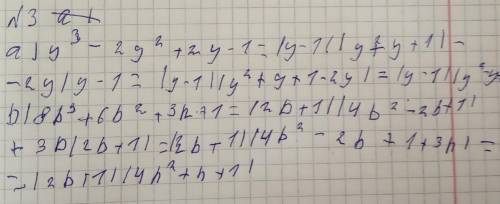 N3 a)
a) y³ - 2y² + 2y - 1 = (y-1)(y²+y+1) -
- 2y(y-1 = (y-1)(y²+y+1-2y) = (y-1)(y²-y
b) 8b³ + 6b² + 3b + 1 = (2b+1)(4b²-2b+1)
+ 3b(2b+1) = (2b+1)(4b² - 2b + 1 + 3b) =
= (2b+1)(4b²+b+1)